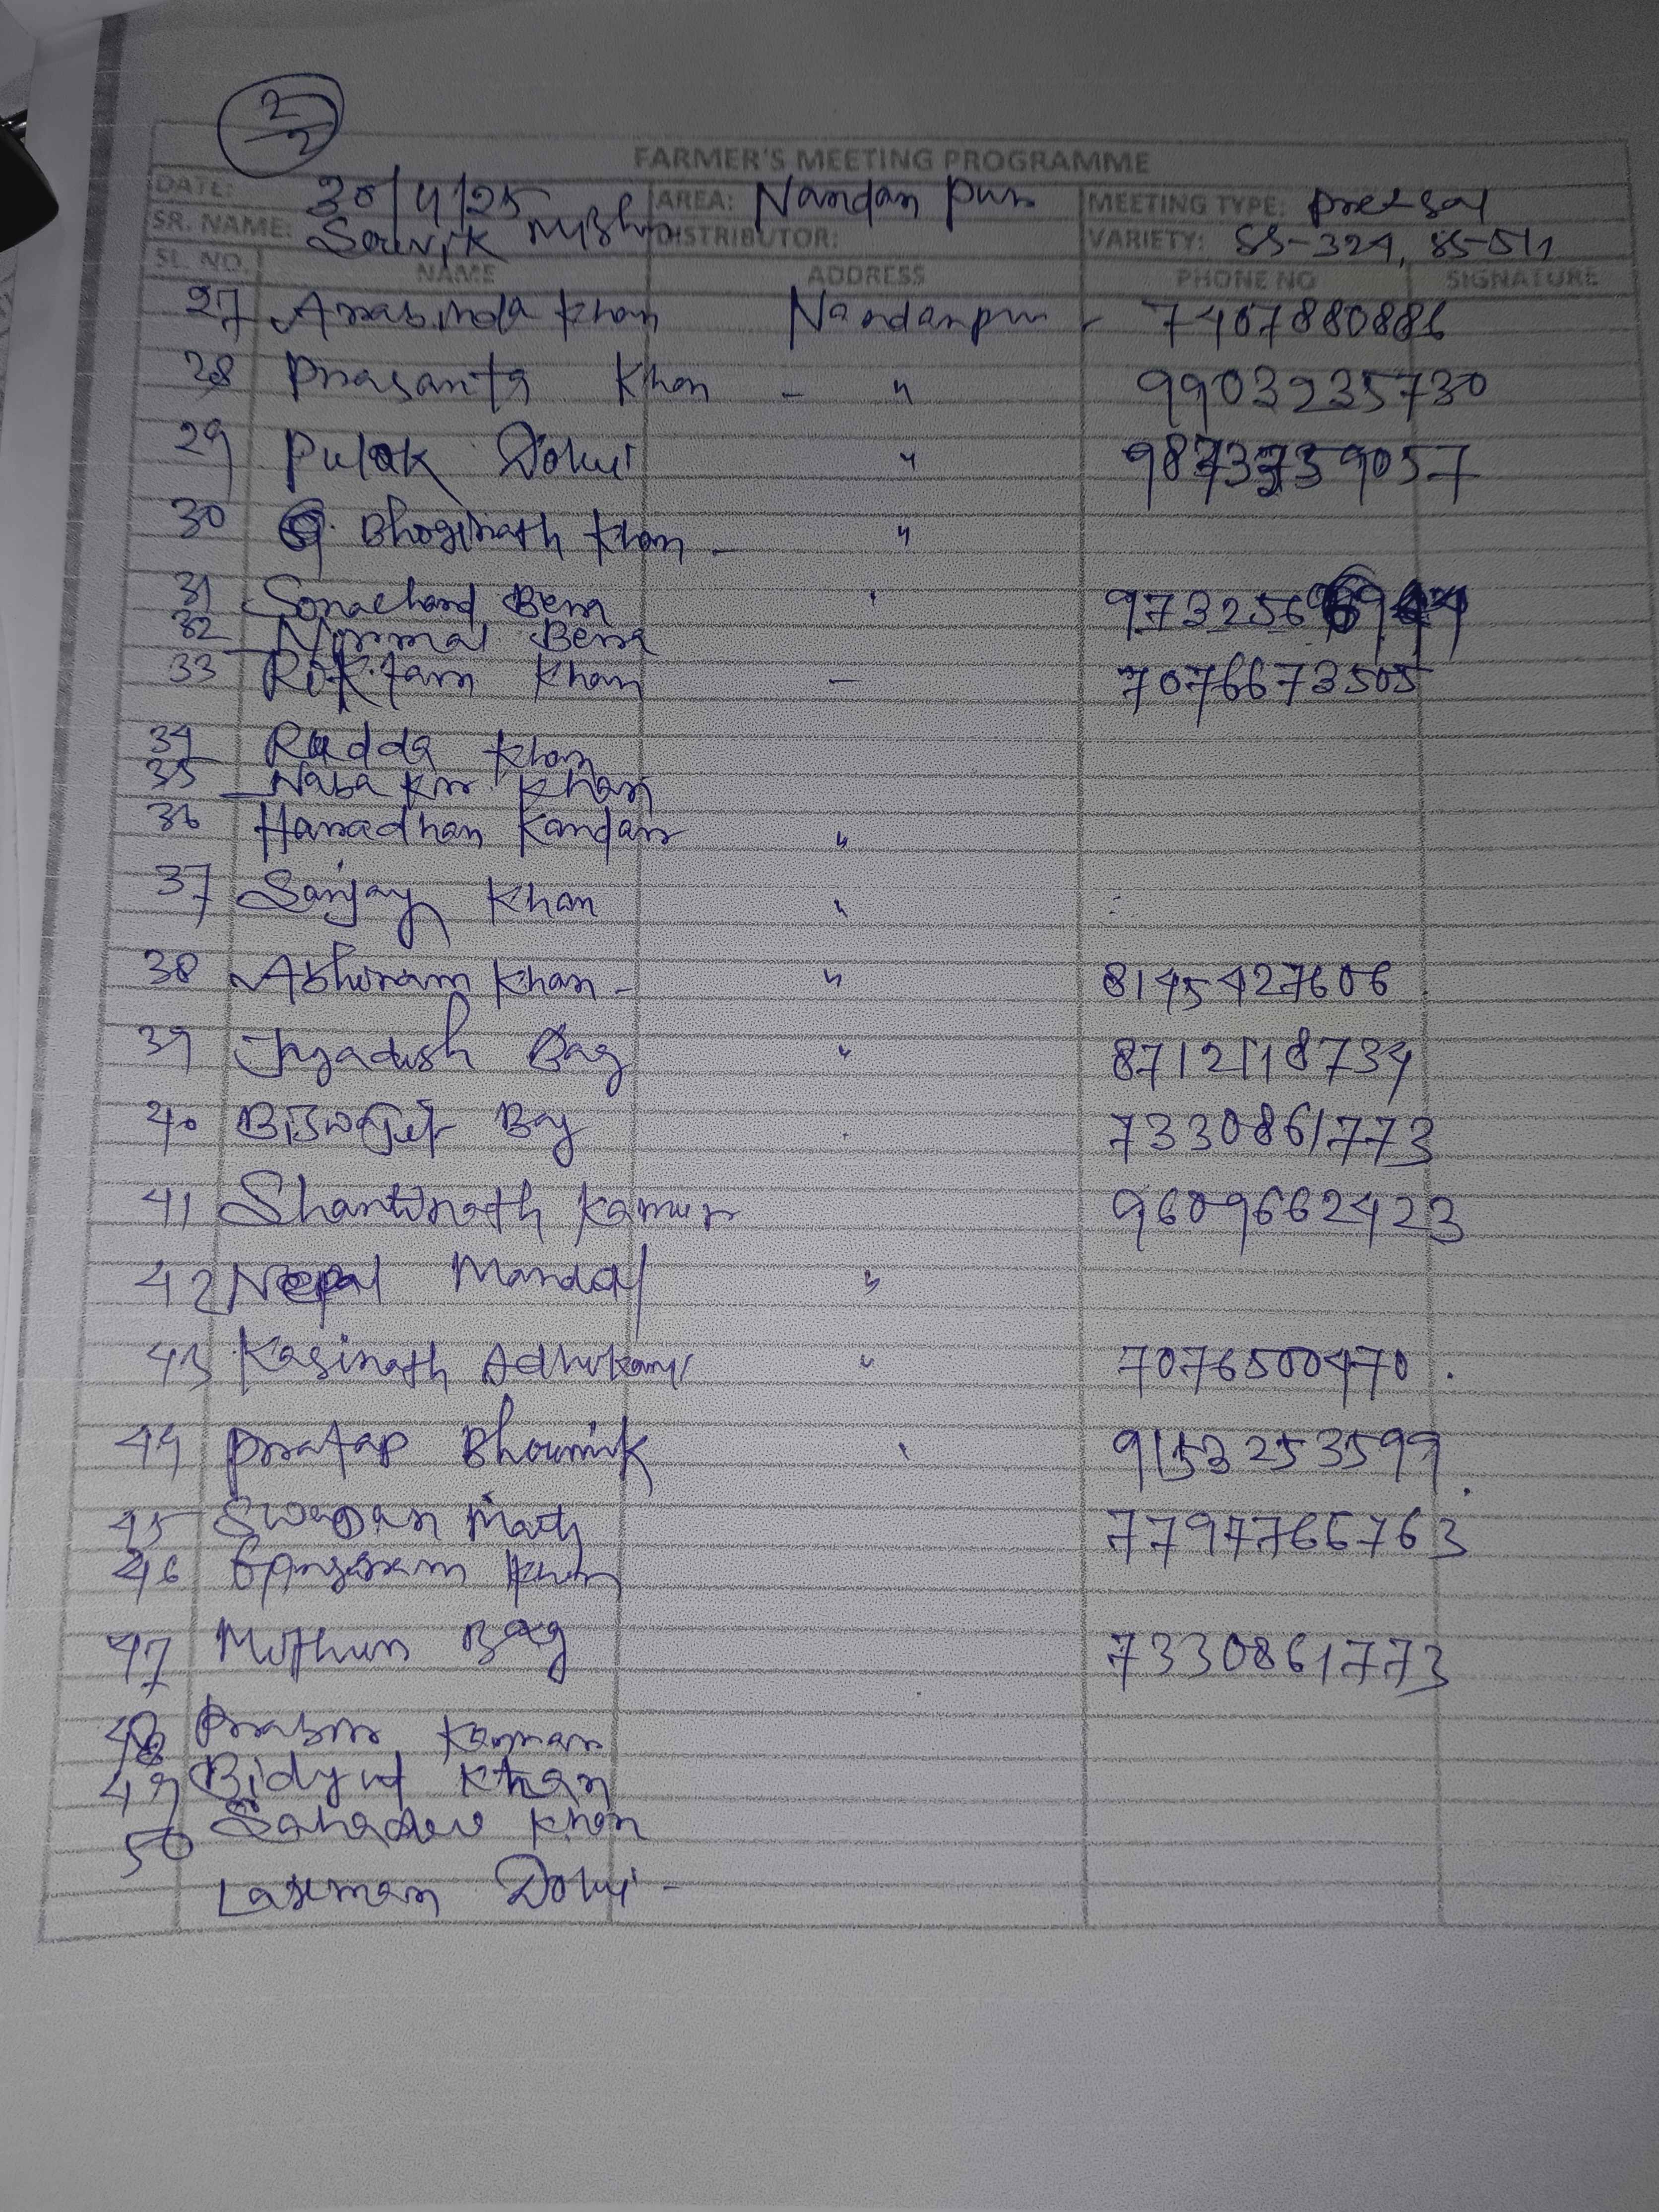 2/2
FARMER'S MEETING PROGRAMME
DATE: 30/4/25 AREA: Nandanpur MEETING TYPE: Pre-sal
SR. NAME: Souvik DISTRIBUTOR: VARIETY: SS-324, SS-511
SL. NO. NAME ADDRESS PHONE NO SIGNATURE
27 Arrabinda Khan Nandanpur - 7407880886
28 Prrasanta Khan - " 9903235730
29 Pulak Dolui "
30 Bhoginath Khan - "
31 Sonachand Berra "
32 Nirmal Berra
33 Khan - 7076673505
34 Khan
35 Naba Kr. Khan
36 Harradhan Kandarr "
37 Sanjay Khan "
38 Abhiram Khan - " 8145427606
39 Jagadish Bag " 8712118734
40 Biswajit Bag 7330861773
41 Shantinath 9609662423
42 Nepal Mandal "
43 Kasinath Adhikari " 7076500470.
44 Prratap Bhoumik 9153253599.
45 Swapan 7797766763
46 Khan
47 Mithun Bag 7330861773
48 Prrabirr
49 Bidyut Khan
50 Sahadev Khan
Laxman Dolui -